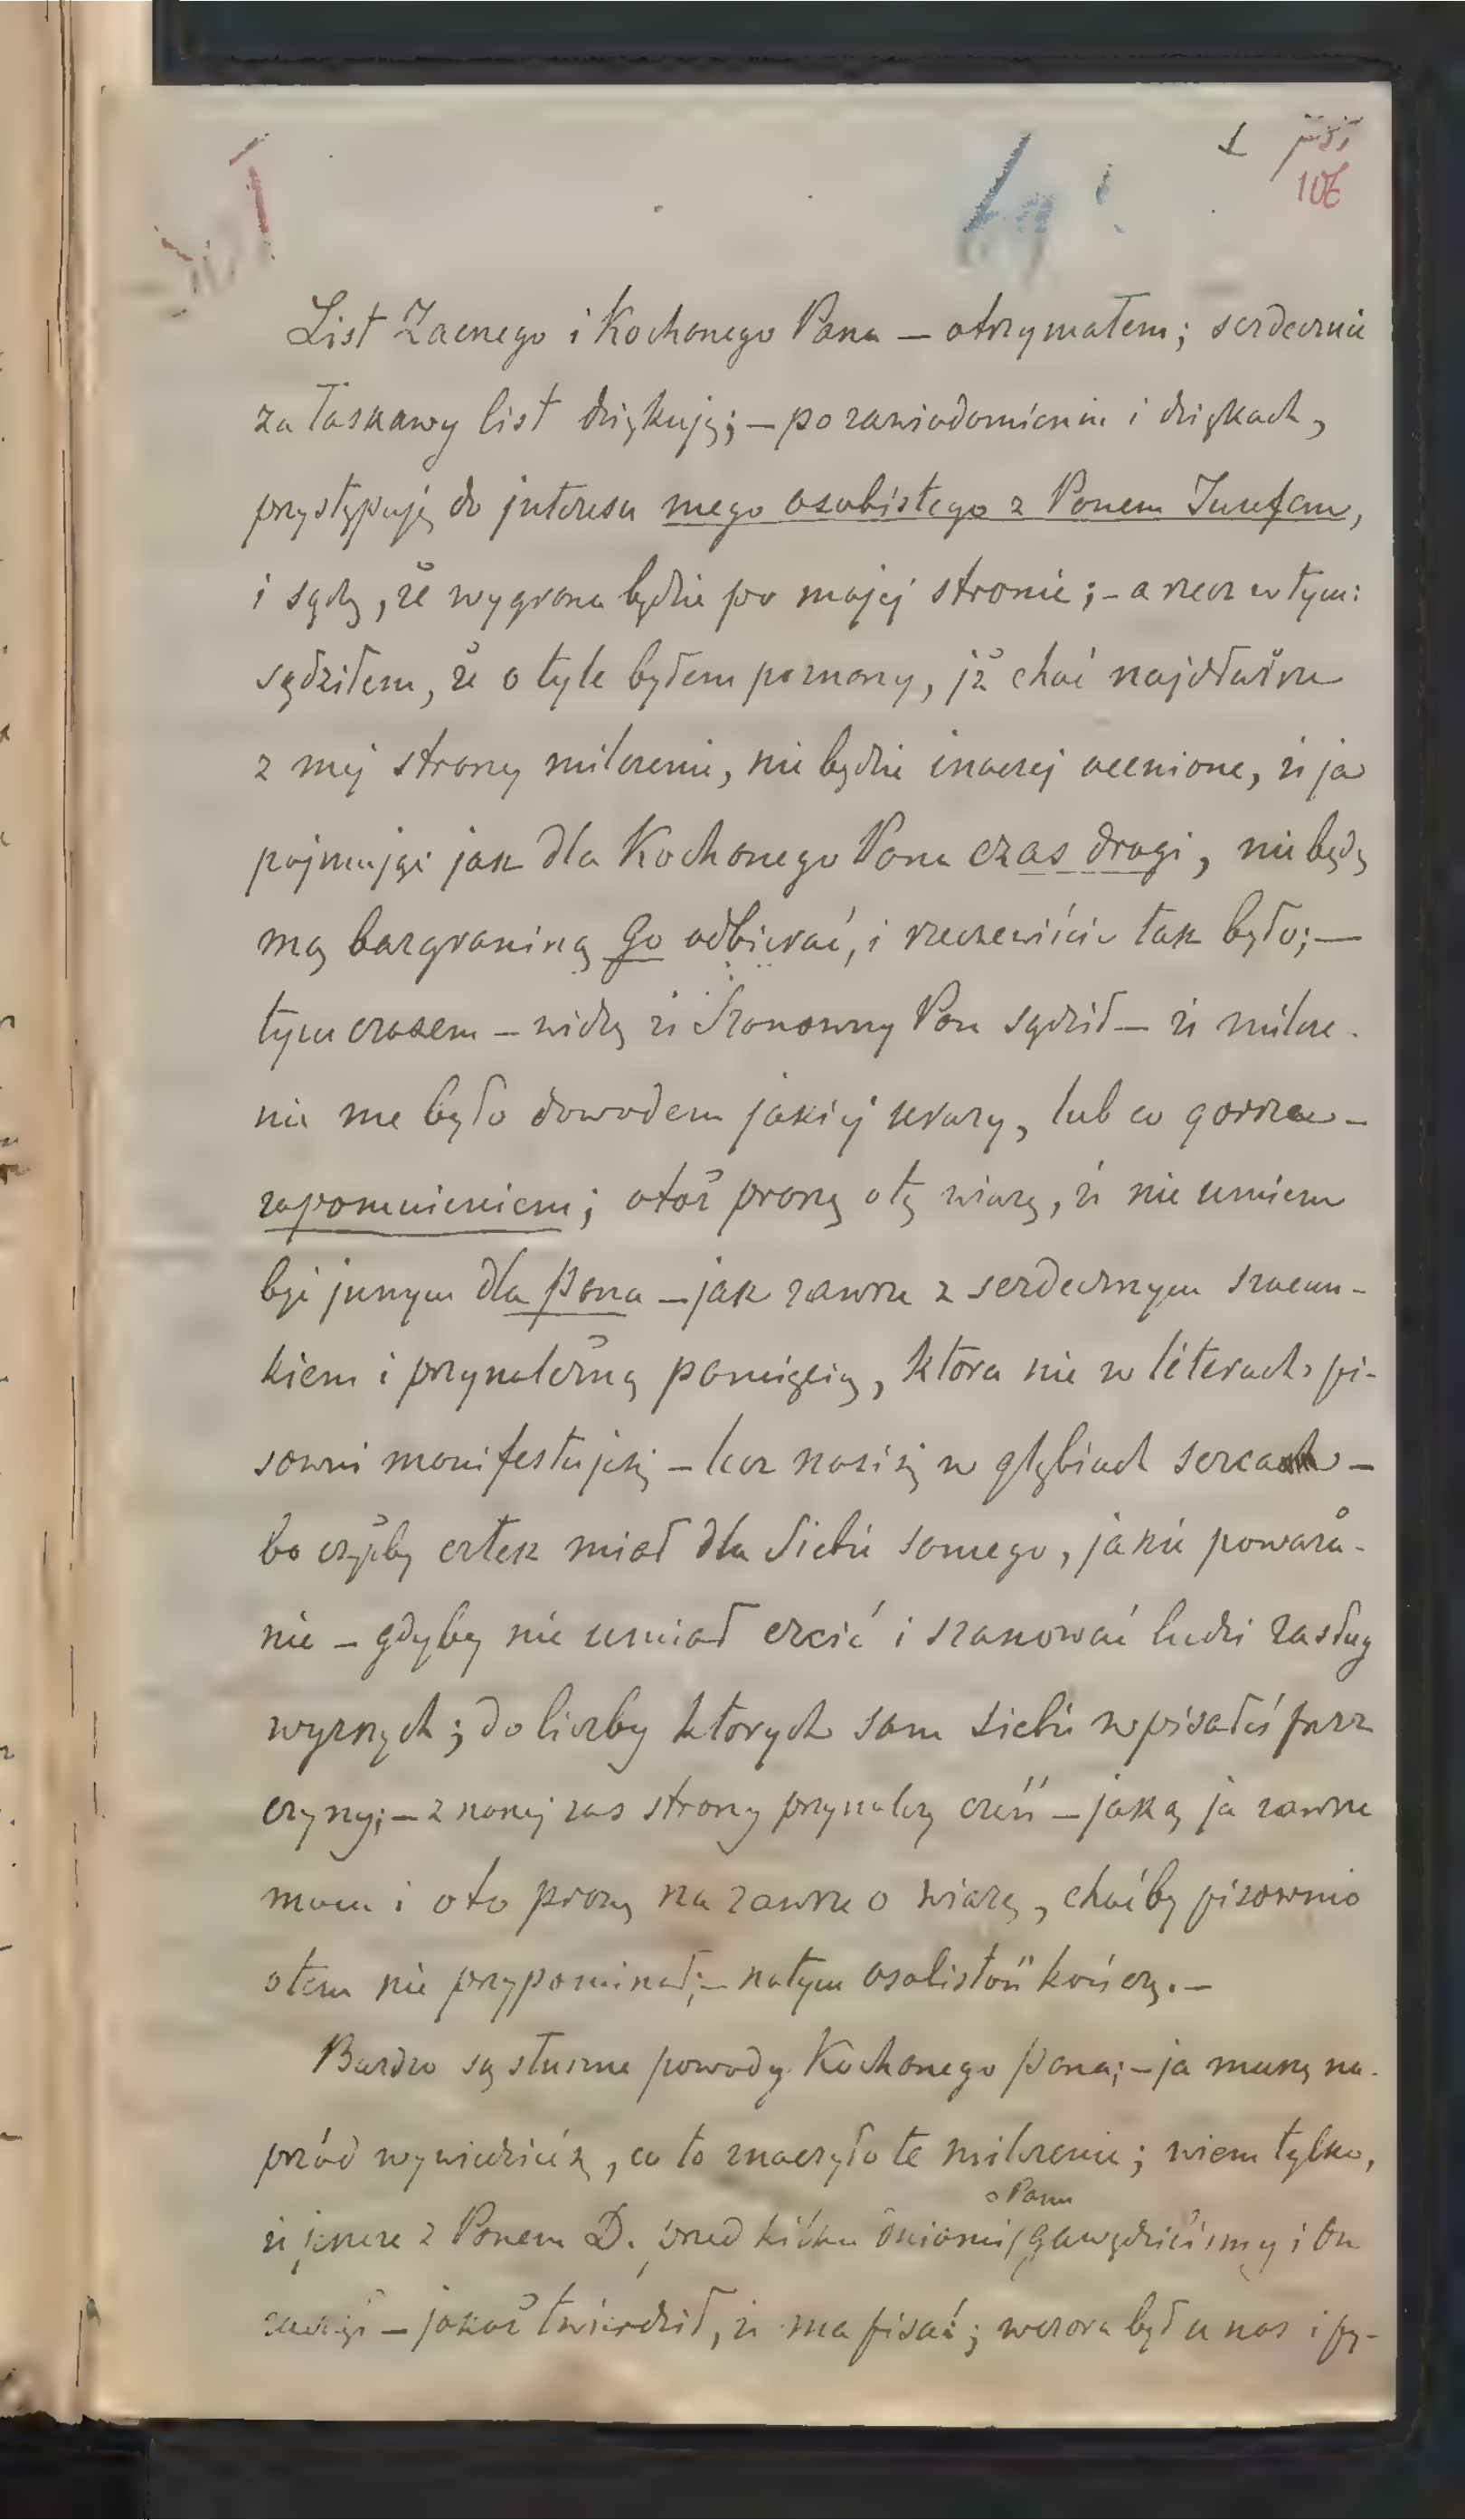 1
106
List Zacnego i Kochanego Pana – otrzymałem; serdecznie
za łaskawy list dziękuję; – po zawiadomieniu i dziękach,
przystępuję do jnteresu mego osobistego z Panem Juzefem,
i sądzę, że wygrana będzie po mojej stronie; – a rzecz w tym:
sądziłem, że o tyle byłem poznany, jż choć najdłuższe
z mej strony milczenie, nie będzie inaczej ocenione, że ja
pojmując jak dla Kochanego Pana czas drogi, nie będę
mą bazgraniną Go odbierać, i rzeczewiście tak było; –
tym czasem – widzę że Szanowny Pan sądził – że milcze-
nie me było dowodem jakiej urazy, lub co gorsze –
zapomnieniem; otoż proszę o tę wiarę, że nie umiem
być jnnym dla Pana – jak zawsze z serdecznym szacun-
kiem i przynależną pamięcią, ktora nie w literach pi-
sowni manifestuje się – lecz nosi się w głębiach serca –
bo czyżby człek miał dla siebie samego, jakie poważa-
nie – gdyby nie umiał czcić i szanować ludzi zasług
wyższych; do liczby ktorych sam siebie wpisałeś przez
czyny; – z naszej zas strony przynależy cześć – jaką ja zawsze
mam i oto proszę na zawsze o wiarę, choćby pisownio
otem nie przypominał; – natym osobistość kończę. –
Bardzo są słuszne powody Kochanego Pana; – ja muszę na-
przód wywiedzieć się, co to znaczyło te milczenie; wiem tylko,
o Panu
że jeszcze z Panem D. przed kilku dniami gawędziliśmy i On
– jakoż twierdził, że ma pisać; wczora był u nas i py-